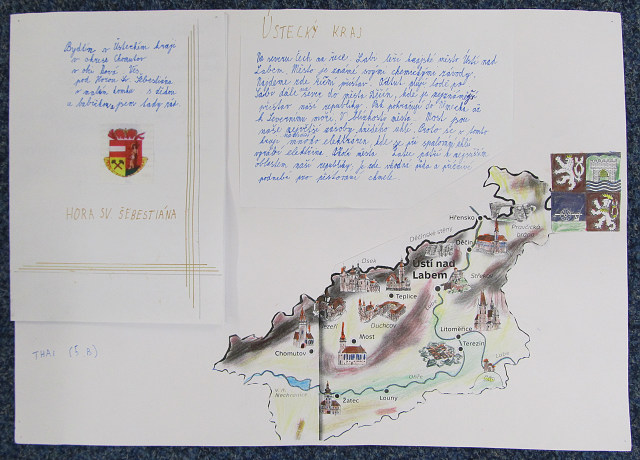 Bydlím v Ústeckém kraji
v okrese Chomutov
v obci Nová Ves
pod Horou sv. Šebestiána
v malém domku s dědou
a babičkou, jsem tady rád.
HORA SV ŠEBESTIÁNA
THAI (5. B)
ÚSTECKÝ KRAJ
Na severu Čech na řece Labi leží krajské město Ústí nad
Labem. Město je známé svými chemickými závody.
Najdeme zde říční přístav. Odtud plují lodě po
Labi dále na sever do města Děčín, kde je nejznámější
přístav naší republiky. Pak pokračují do Německa až
k Severnímu moři. V blízkosti města Most jsou
naše největší zásoby hnědého uhlí. Proto se v tomto
kraji nachází mnoho elektráren, kde se při spalování uhlí
vyrábí elektřina. Okolí města Žatec patří k nejsušším
oblastem naší republiky, je zde vhodná půda a příznivé
podnebí pro pěstování chmele.
Hřensko
Pravčická
brána
Děčínské stěny
Děčín
Ústí nad
Labem
Osek
Teplice
Duchcov
Most
Chomutov
Litoměřice
Terezín
Labe
Ohře
Žatec
Louny
Nechranice